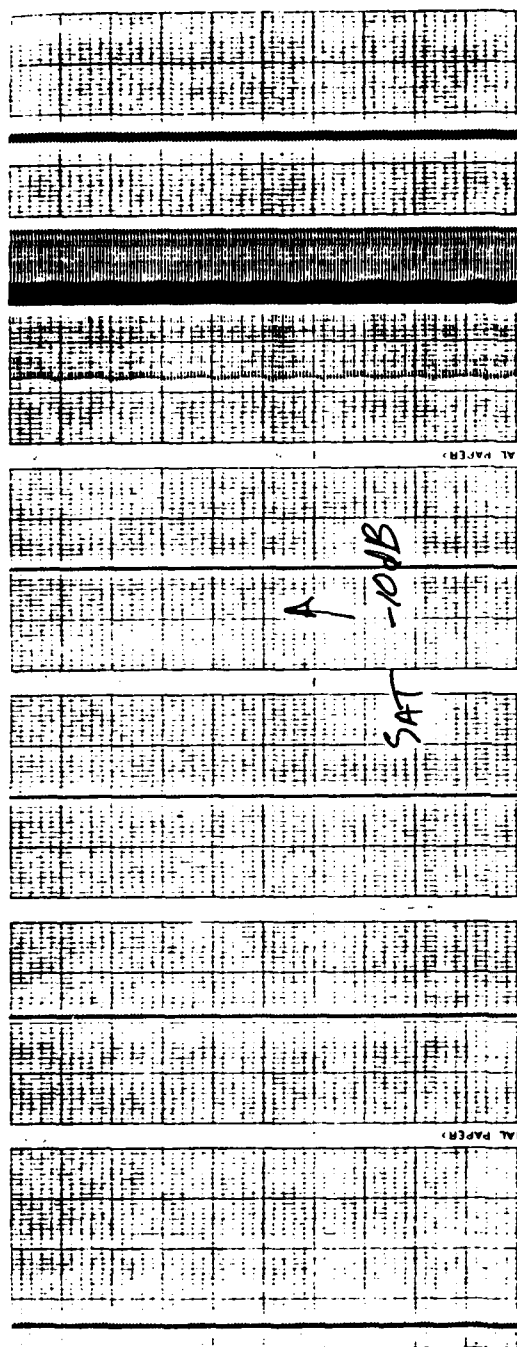 AL PAPER)
SAT -10dB
AL PAPER)